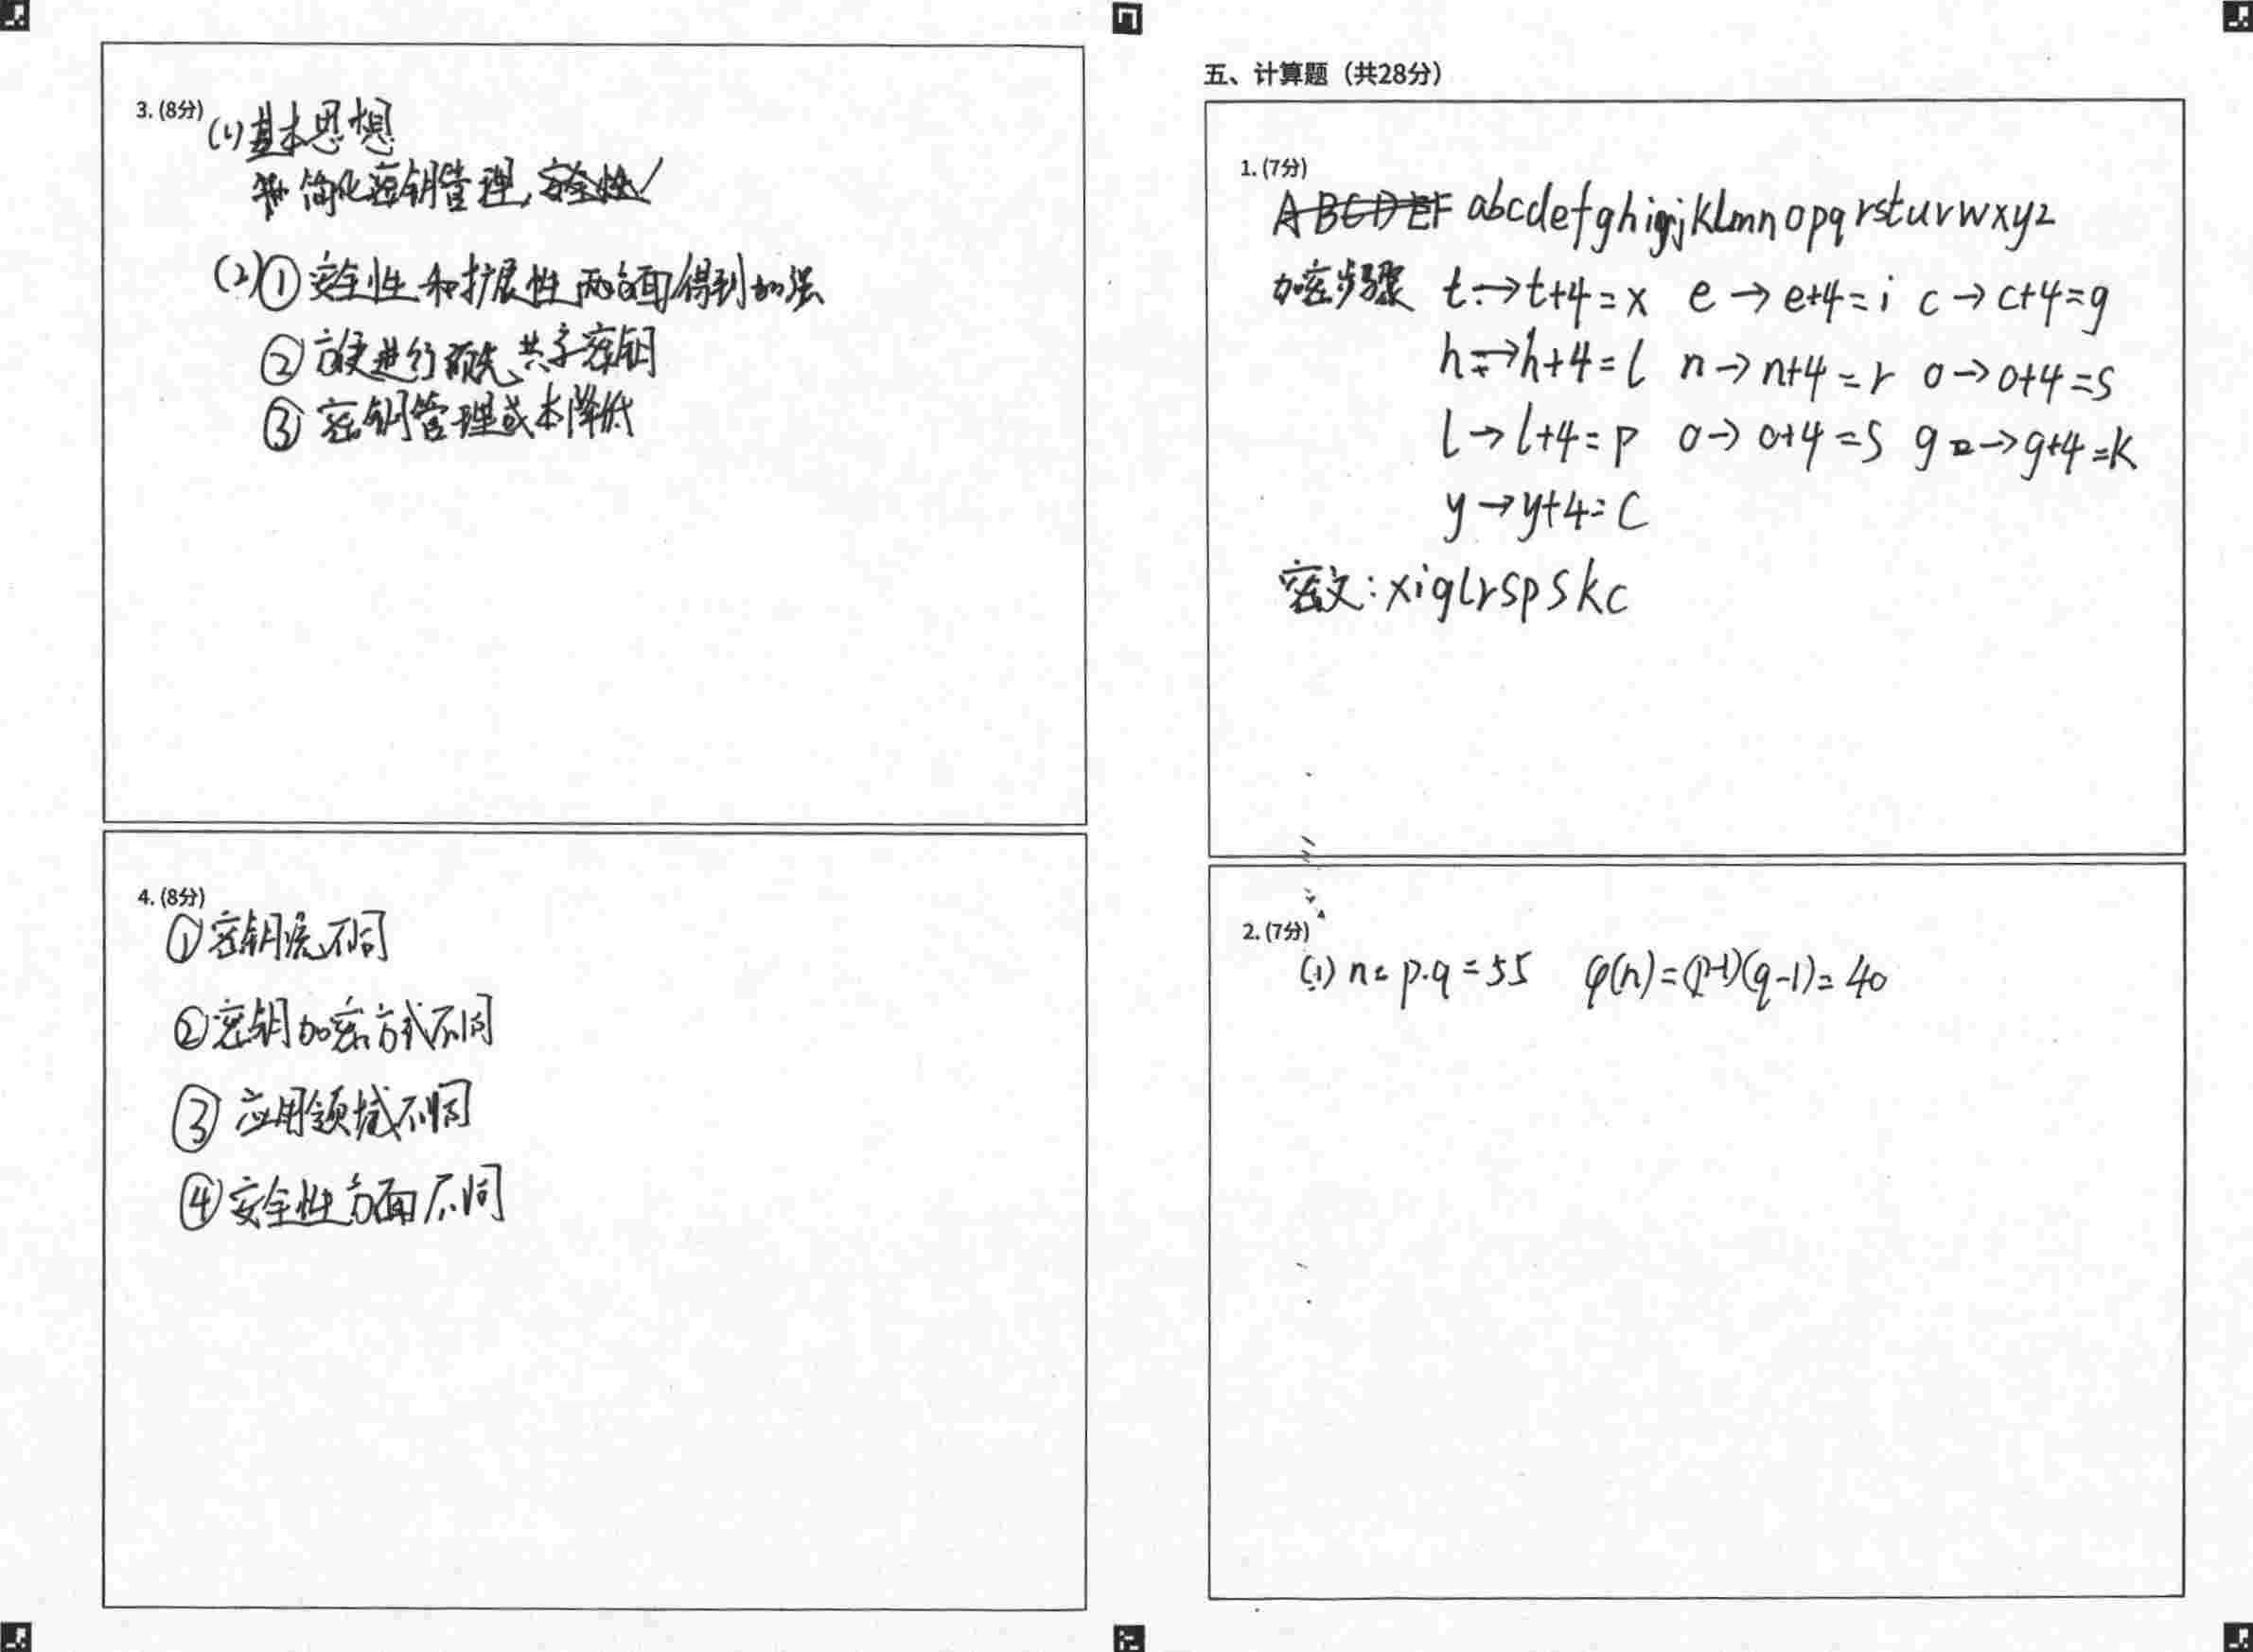 3. (8分)
(1) 基本思想
简化密钥管理,
(2) ① 安全性和扩展性两方面得到加强
② 方便进行预先共享密钥
③ 密钥管理成本降低
4. (8分)
① 密钥流不同
② 密钥加密方式不同
③ 应用领域不同
④ 安全性方面不同
五、计算题（共28分）
1. (7分)
ABCDEF abcdefghijklmnopqrstuvwxyz
加密步骤 t→t+4=x e→e+4=i c→c+4=g
h→h+4=l n→n+4=r o→o+4=s
l→l+4=p o→o+4=s g→g+4=k
y→y+4=c
密文: xiglrspskc
2. (7分)
(1) n=p·q=55 φ(n)=(p-1)(q-1)=40